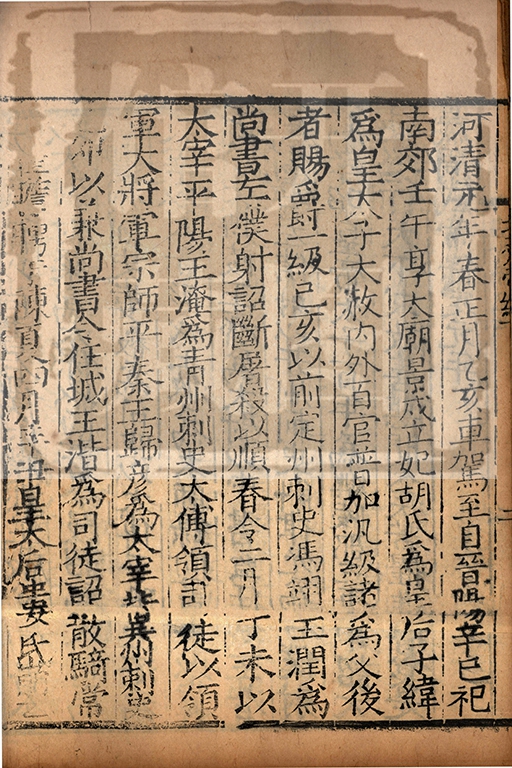 河清元年春正月乙亥車駕至自晉陽辛巳祀
南郊壬午享太廟景戍立妃胡氏為皇后子緯
為皇太子大赦內外百官普加汎級諸為父後
者賜爵一級己亥以前定州刺史馮翊王潤為
尚書左僕射詔斷屠殺以順春令二月丁未以
太宰平陽王淹為青州刺史太傅領司徒以領
軍大將軍宗師平秦王歸彥為太宰冀州刺史
以兼尚書令任城王湝為司徒詔散騎常
陳夏四月辛丑皇太后婁氏